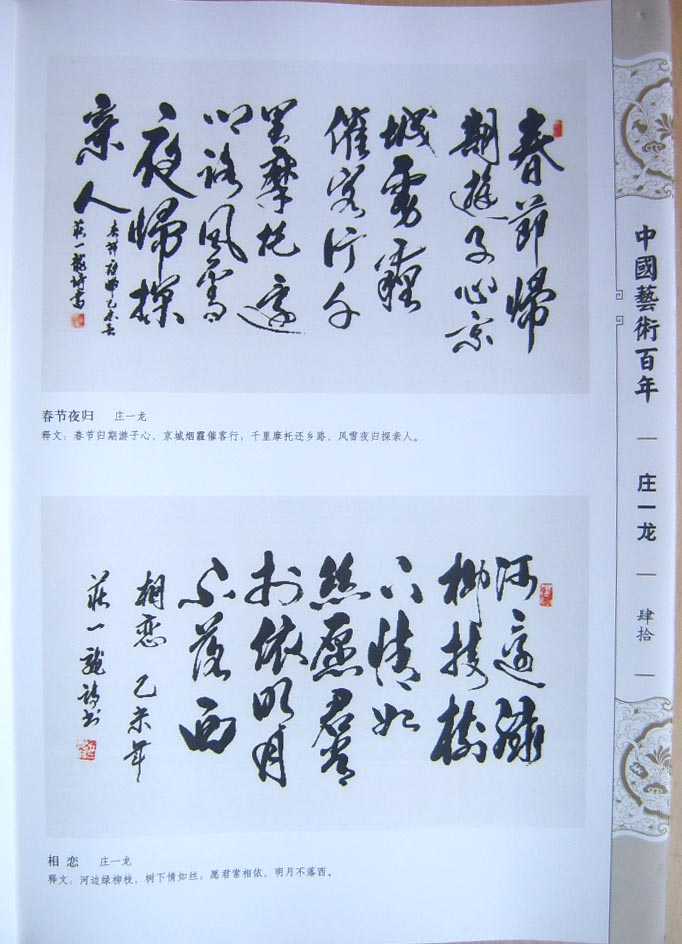 春節歸
期遊子心京
城雾霾
催客行千
里摩托還
鄉路風雪
夜歸探
亲人
春節夜歸乙未春
莊一龍詩書
春节夜归 庄一龙
释文：春节归期游子心，京城烟霾催客行；千里摩托还乡路，风雪夜归探亲人。
河邊綠
柳枝樹
下情如
絲愿君常
相依明月
不落西
相恋 乙未年
莊一龍詩书
相恋 庄一龙
释文：河边绿柳枝，树下情如丝；愿君常相依，明月不落西。
中國藝術百年
庄一龙
肆拾